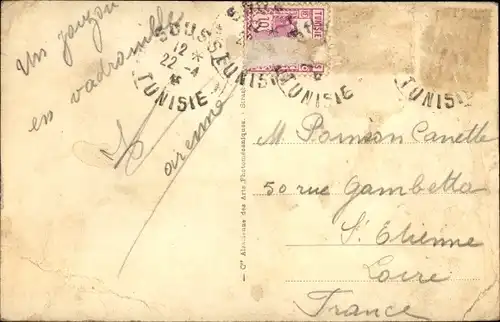 Un
en vadrouille
SOUSSE
12 *
22 - 4
TUNISIE
TUNISIE
10
TUNISIE
TUNISIE
TUNISIE
— Cie Alsacienne des Arts Photomécaniques.
M Poinson Canette
50 rue Gambetta
St Etienne
Loire
France